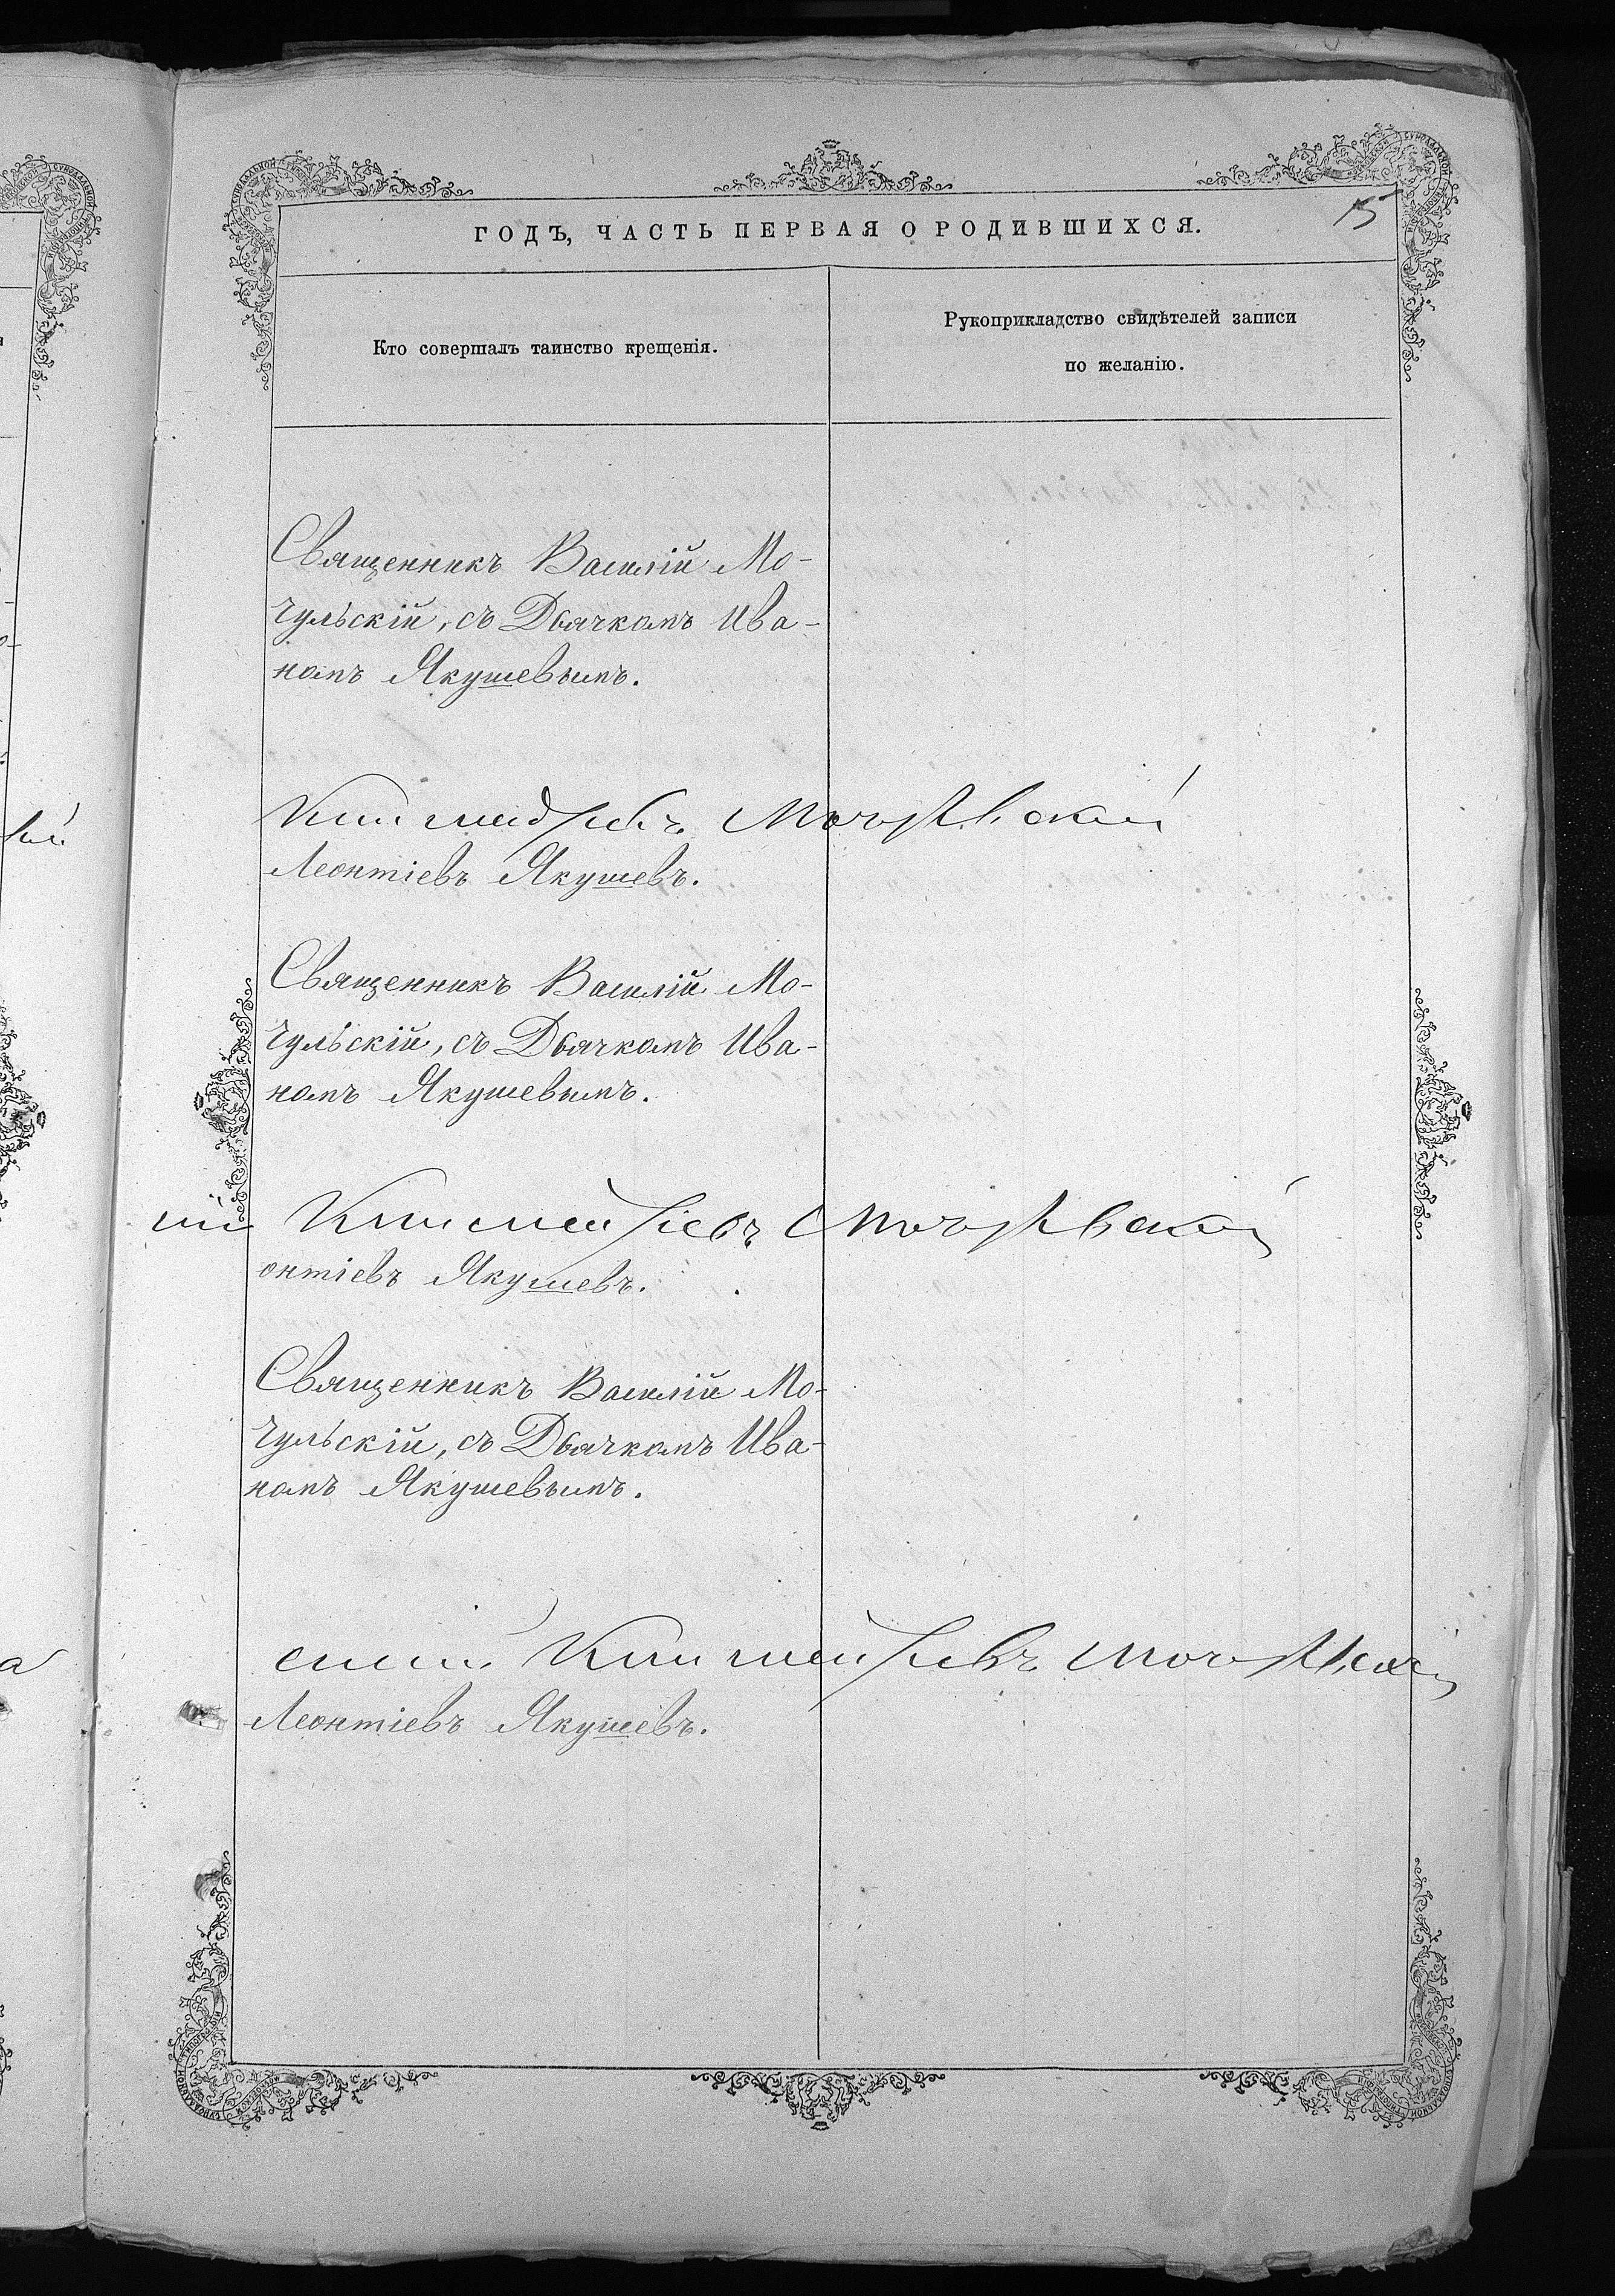 15
ГОДЪ, ЧАСТЬ ПЕРВАЯ О РОДИВШИХСЯ.
Кто совершалъ таинство крещенія.
Рукоприкладство свидѣтелей записи
по желанію.
Священникъ Василій Мо-
чульскій, съ Дьячкомъ Ива-
номъ Якушевымъ.
Мочульскій
Леонтіевъ Якушевъ.
Священникъ Василій Мо-
чульскій, съ Дьячкомъ Ива-
номъ Якушевымъ.
Мочульскій
онтіевъ Якушевъ.
Священникъ Василій Мо-
чульскій, съ Дьячкомъ Ива-
номъ Якушевымъ.
Мочульскій
Леонтіевъ Якушевъ.